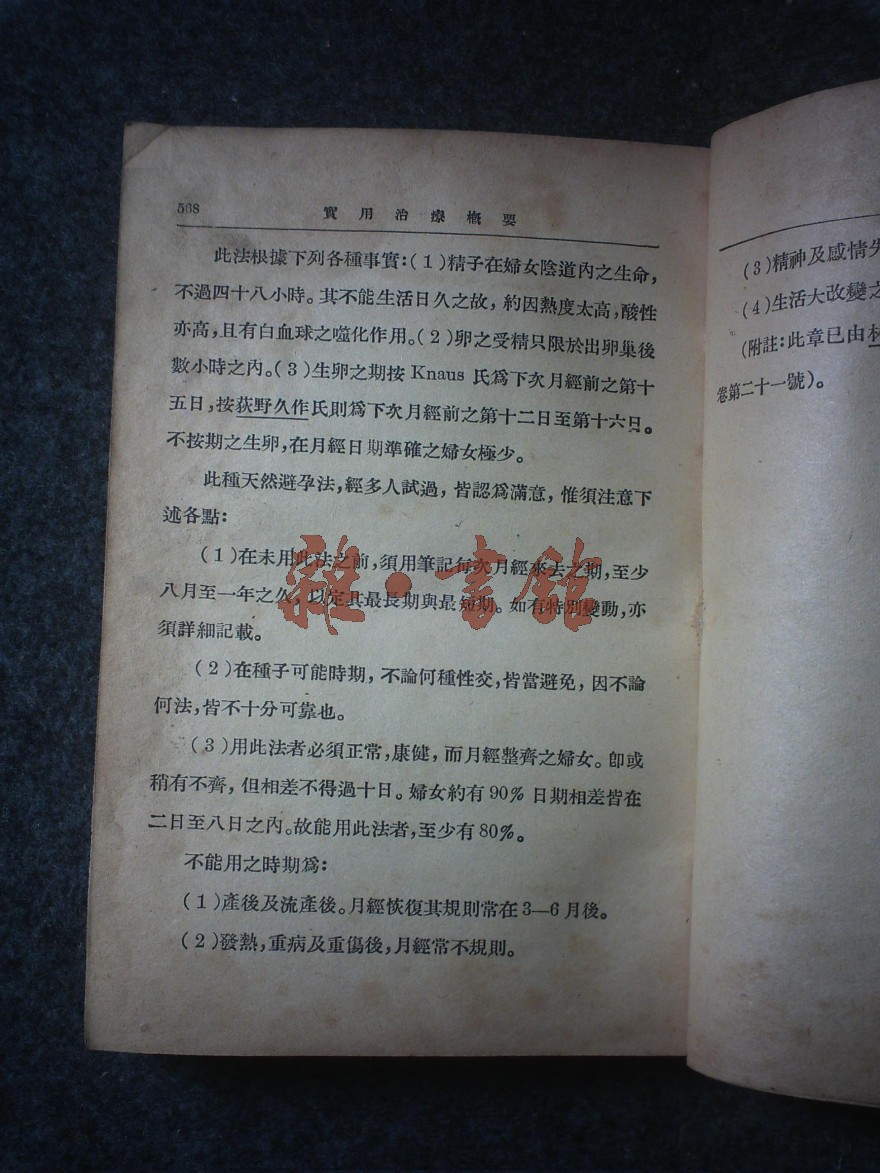 568
實用治療概要
此法根據下列各種事實:(1)精子在婦女陰道內之生命,
不過四十八小時。其不能生活日久之故,約因熱度太高,酸性
亦高,且有白血球之噬化作用。(2)卵之受精只限於出卵巢後
數小時之內。(3)生卵之期按 Knaus 氏爲下次月經前之第十
五日,按荻野久作氏則爲下次月經前之第十二日至第十六日。
不按期之生卵,在月經日期準確之婦女極少。
此種天然避孕法,經多人試過,皆認爲滿意,惟須注意下
述各點:
(1)在未用此法之前,須用筆記每次月經來去之期,至少
八月至一年之久,以定其最長期與最短期。如有特別變動,亦
須詳細記載。
(2)在種子可能時期,不論何種性交,皆當避免,因不論
何法,皆不十分可靠也。
(3)用此法者必須正常,康健,而月經整齊之婦女。卽或
稍有不齊,但相差不得過十日。婦女約有 90% 日期相差皆在
二日至八日之內。故能用此法者,至少有 80%。
不能用之時期爲:
(1)產後及流產後。月經恢復其規則常在 3—6 月後。
(2)發熱,重病及重傷後,月經常不規則。
(3)精神及感情失
(4)生活大改變之
(附註:此章已由林
卷第二十一號)。
雜·書館